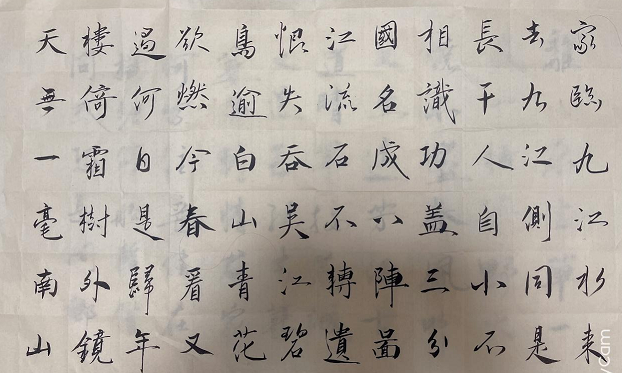 家臨九江水来
去九江側同是
長干人自小不
相識功盖三分
國名成八陣圖
江流石不轉遺
恨失吞吴江碧
鳥逾白山青花
欲燃今春看又
過何日是歸年
棲倚霜樹外鏡
天無一毫南山